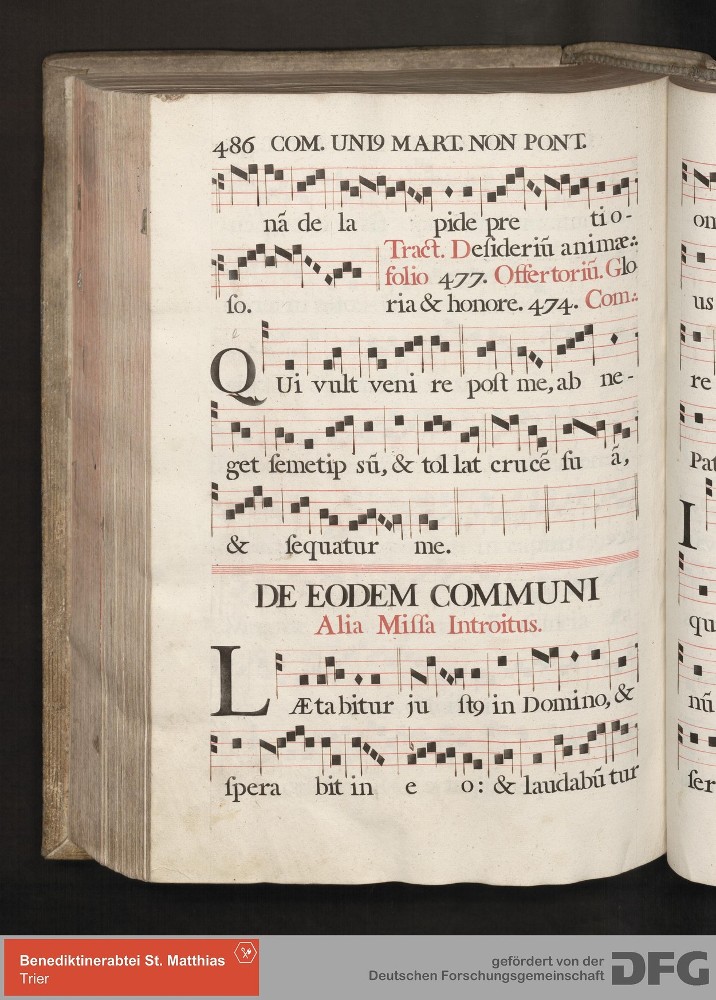 486 COM. UNI9 MART. NON PONT.
nã de la pide pre tio-
Tract. Deſideriũ animæ:.
folio 477. Offertoriũ. Glo
ſo. ria & honore. 474. Com:.
QUi vult veni re poſt me, ab ne-
get ſemetip sũ, & tol lat crucẽ ſu ã,
& ſequatur me.
DE EODEM COMMUNI
Alia Miſſa Introitus.
LÆtabitur ju ſt9 in Domino, &
ſpera bit in e o: & laudabũ tur
on
us
re
Pat
I
qu
nũ
ſer
Benediktinerabtei St. Matthias
Trier
gefördert von der
Deutschen Forschungsgemeinschaft
DFG